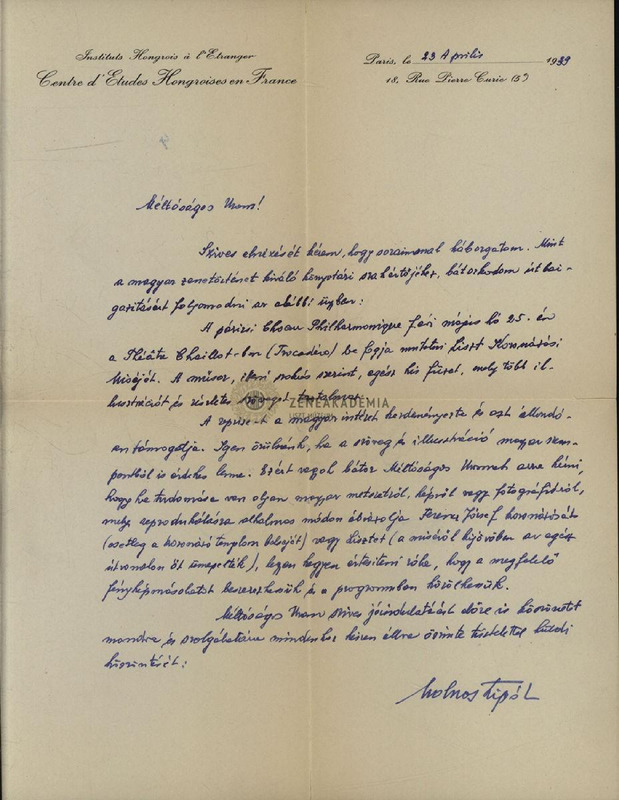 Instituts Hongrois à l'Etranger
Centre d'Etudes Hongroises en France
Paris, le 23 Április 1939
18, Rue Pierre Curie (5e)
Méltóságos Uram!
Szíves elnézését kérem, hogy soraimmal háborgatom. Mint
a magyar zenetörténet kiváló könyvtári szakértőjéhez, bátorkodom útbai-
gazításért folyamodni az alábbi ügyben:
A párizsi Choeur Philharmonique f. évi május hó 25.-én
a Théâtre Chaillot-ban (Trocadéro) be fogja mutatni Liszt Koronázási
Miséjét. A műsor, ilyen szokás szerint, egész kis füzet, mely több il-
lusztrációt és részletes szöveget tartalmaz.
ZENEAKADÉMIA
LISZT MÚZEUM
A represet a magyar intézet kezdeményezte és azt állandó-
an támogatja. Igen örülnénk, ha a szöveg és illusztráció magyar szem-
pontból is érdekes lenne. Ezért vagyok bátor Méltóságos Uramat arra kérni,
hogy ha tudomása van olyan magyar metszetről, képről vagy fotográfiáról,
mely reprodukálásra alkalmas módon ábrázolja Ferenc József koronázását
(esetleg a koronázó templom belsejét) vagy Lisztet (a miséről kijövőben az egész
útvonalon őt ünnepelték), legyen kegyes értesíteni róla, hogy a megfelelő
fényképmásolatot beszerezhessük és a programmban közölhessük.
Méltóságos Uram szíves jóindulatáért előre is köszönetet
mondva és szolgálatára mindenkor készen állva őszinte tisztelettel küldi
köszöntését:
Molnos Lipót